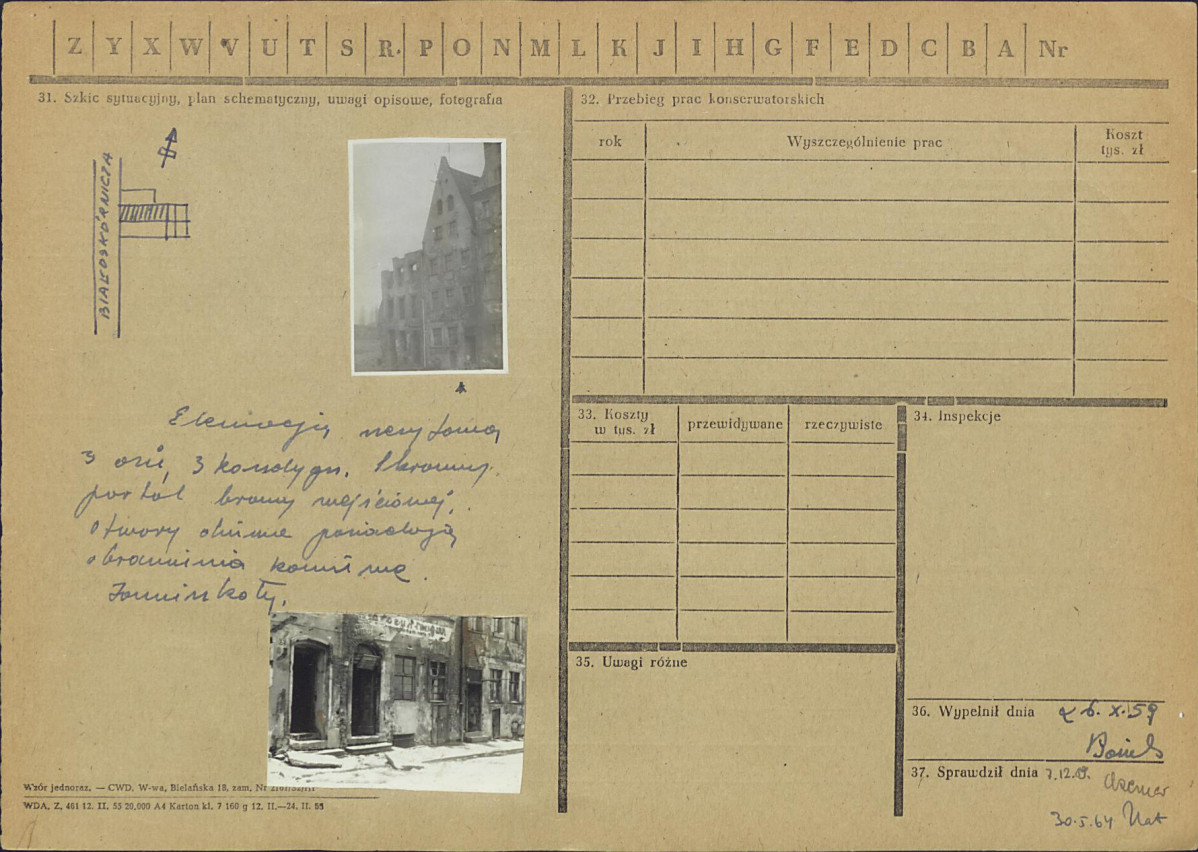 Z Y X W V U T S R P O N M L K J I H G F E D C B A Nr
31. Szkic sytuacyjny, plan schematyczny, uwagi opisowe, fotografia
BIAŁOSKÓRNICZA
3 osie, 3 kondygn. Skromny
portal bramy wejściowej,
otwory okienne posiadają
obramienia
Zamieszkały.
Wzór jednoraz. — CWD, W-wa, Bielańska 18, zam. Nr
WDA. Z. 461 12. II. 55 20.000 A4 Karton kl. 7 160 g 12. II.—24. II. 55
32. Przebieg prac konserwatorskich
rok Wyszczególnienie prac Koszt
tys. zł
33. Koszty
w tys. zł
przewidywane rzeczywiste
34. Inspekcje
35. Uwagi różne
36. Wypełnił dnia 26. X. 59
37. Sprawdził dnia
30.5.64